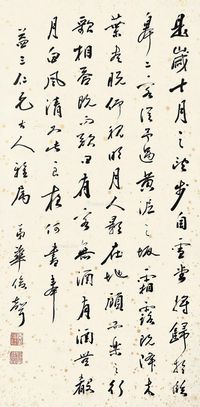 是歲十月之望步自雪堂將歸於臨
皋二客從予過黃泥之坂霜露既降木
葉盡脫仰視明月人影在地顧而樂之行
歌相答既而歎曰有客無酒有酒無殽
月白風清如此良夜何書奉
益三仁兄大人雅屬
弟華聲